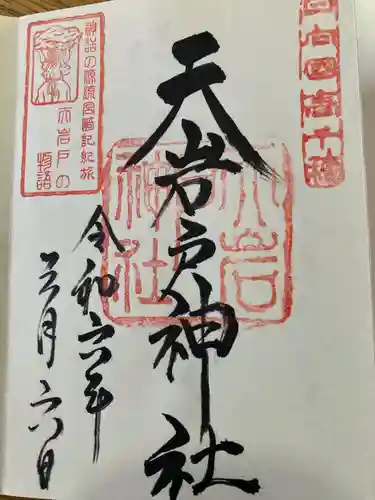 日向國高千穂
天岩戸神社
天岩戸神社
神話の源流宮崎記紀旅
天岩戸の
物語
令和六年
三月六日